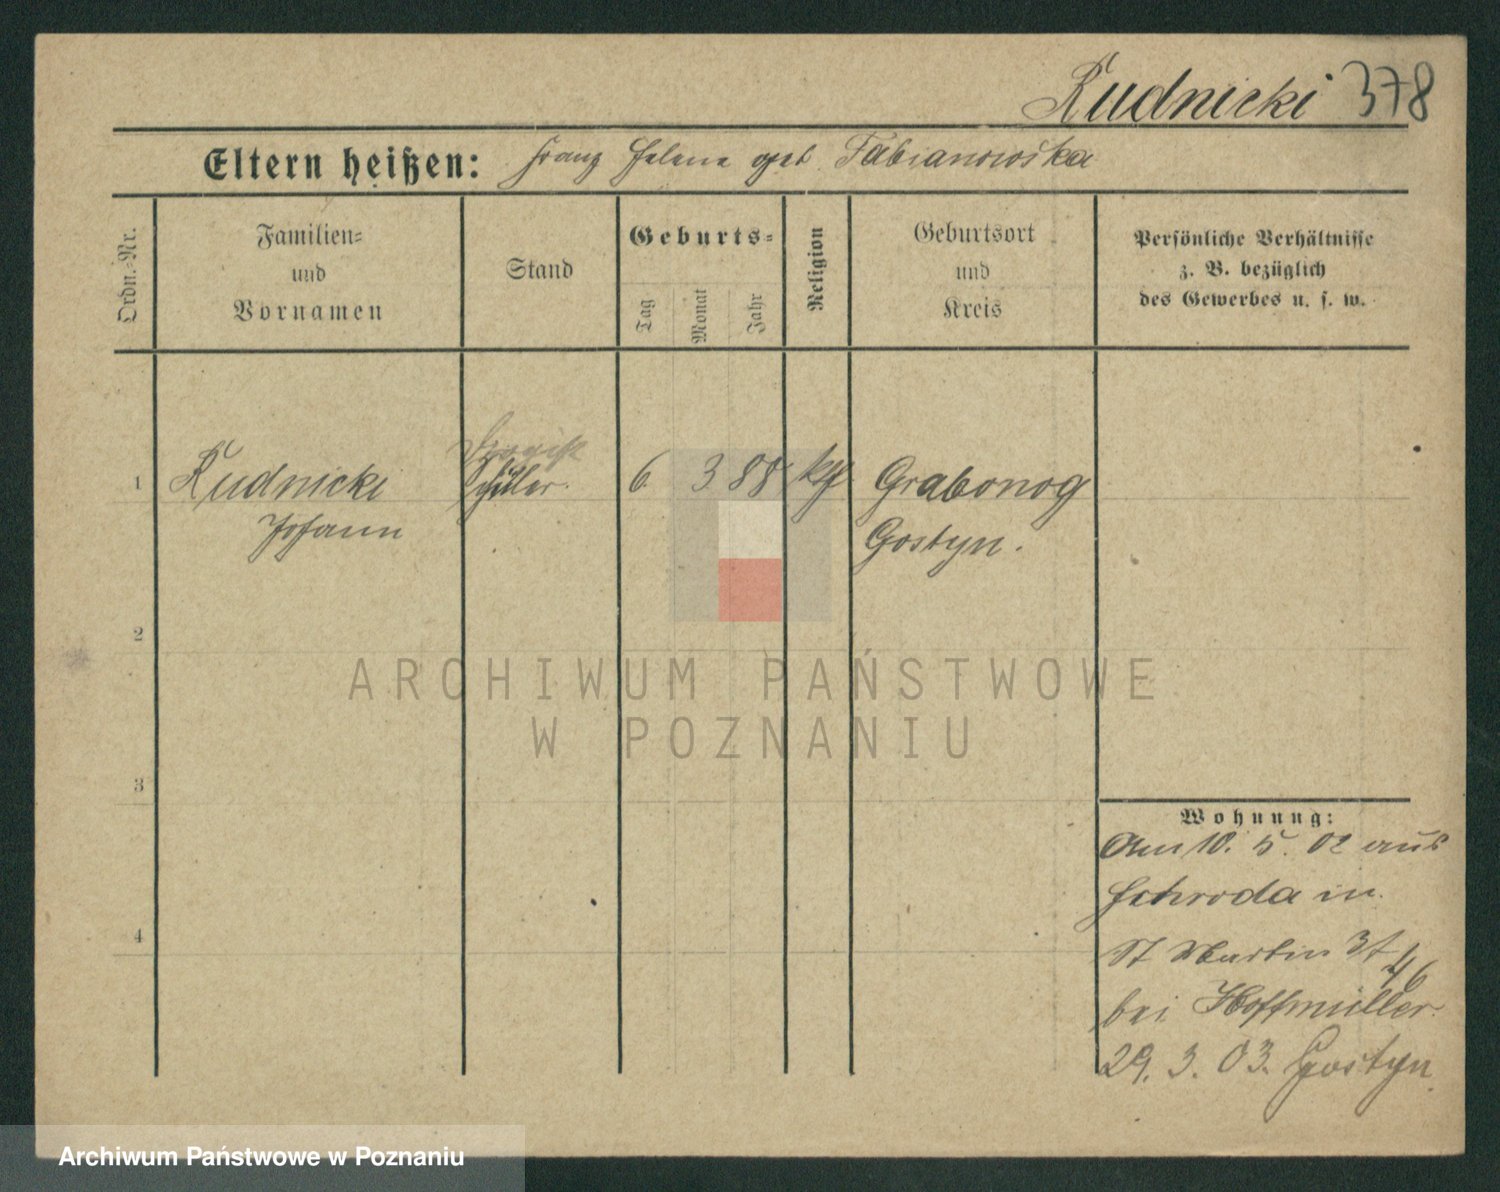 Rudnicki 378
Eltern heißen: Franz Helene geb. Fabianowska
Ordn.-Nr.
Familien-
und
Vornamen
Stand
Geburts-
Tag
Monat
Jahr
Religion
Geburtsort
und
Kreis
Persönliche Verhältnisse
z. B. bezüglich
des Gewerbes u. s. w.
1 Rudnicki Schüler. 6. 3 88 kth Grabonog
Johann Gostyn.
2
3
4
Wohnung:
Am 10. 5. 02 aus
Schroda in
St Martin 34
46
bei Hoffmüller.
29. 3. 03. Gostyn
ARCHIWUM PAŃSTWOWE
W POZNANIU
Archiwum Państwowe w Poznaniu